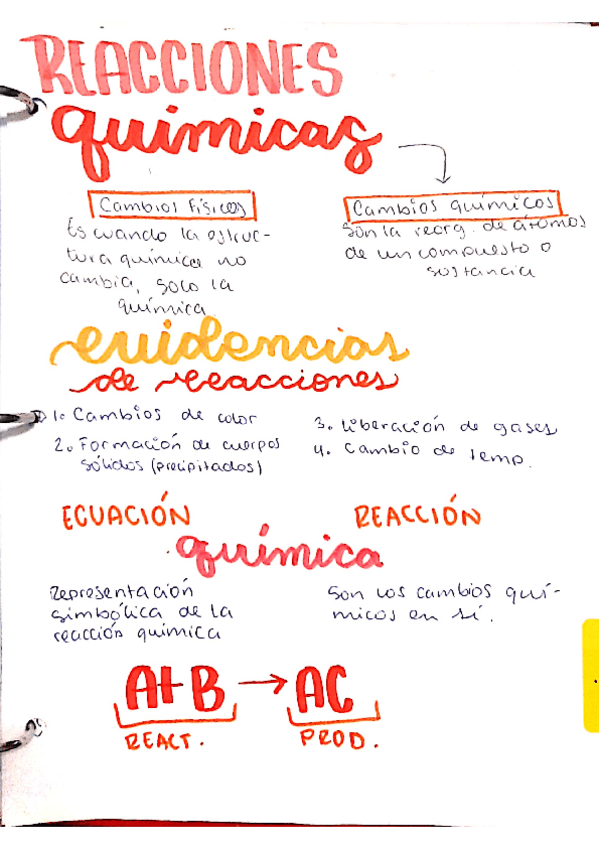 REACCIONES
químicas
Cambios Físicos
Es cuando la estruc-
tura química no
cambia, solo la
química
Cambios químicos
Son la reorg. de átomos
de un compuesto o
sustancia
evidencias
de reacciones
1. Cambios de color
2. Formación de cuerpos
sólidos (precipitados)
3. Liberación de gases
4. Cambio de Temp.
ECUACIÓN REACCIÓN
química
Representación
simbólica de la
reacción química
Son los cambios quí-
micos en sí.
A+B → AC
REACT. PROD.